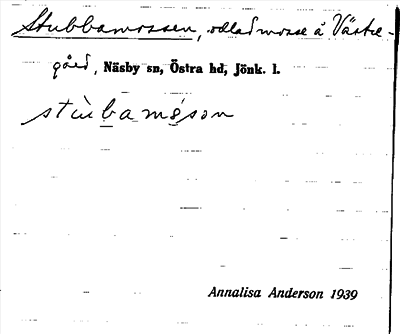 Stubbamossen, odlad mosse å Västre-
gård, Näsby sn, Östra hd, Jönk. l.
stùbamåson
Annalisa Anderson 1939